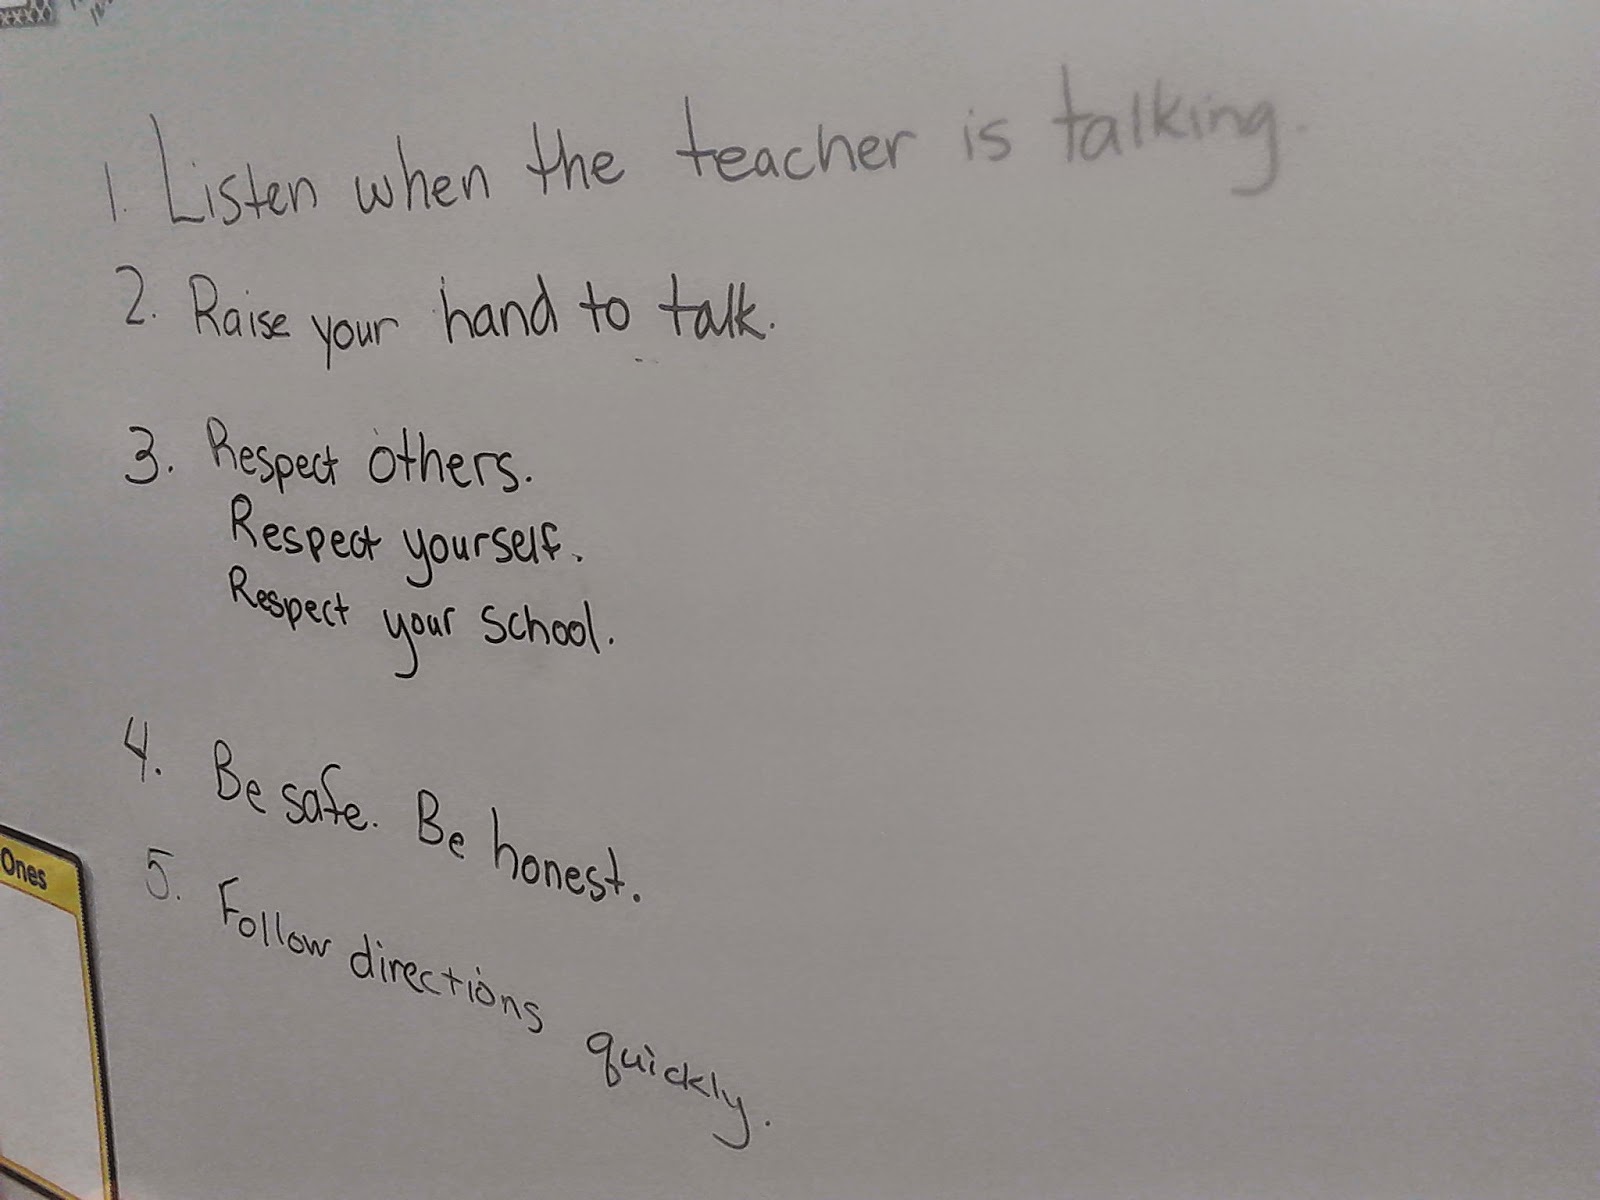 1. Listen when the teacher is talking.
2. Raise your hand to talk.
3. Respect others.
Respect yourself.
Respect your school.
4. Be safe. Be honest.
5. Follow directions quickly.
Ones